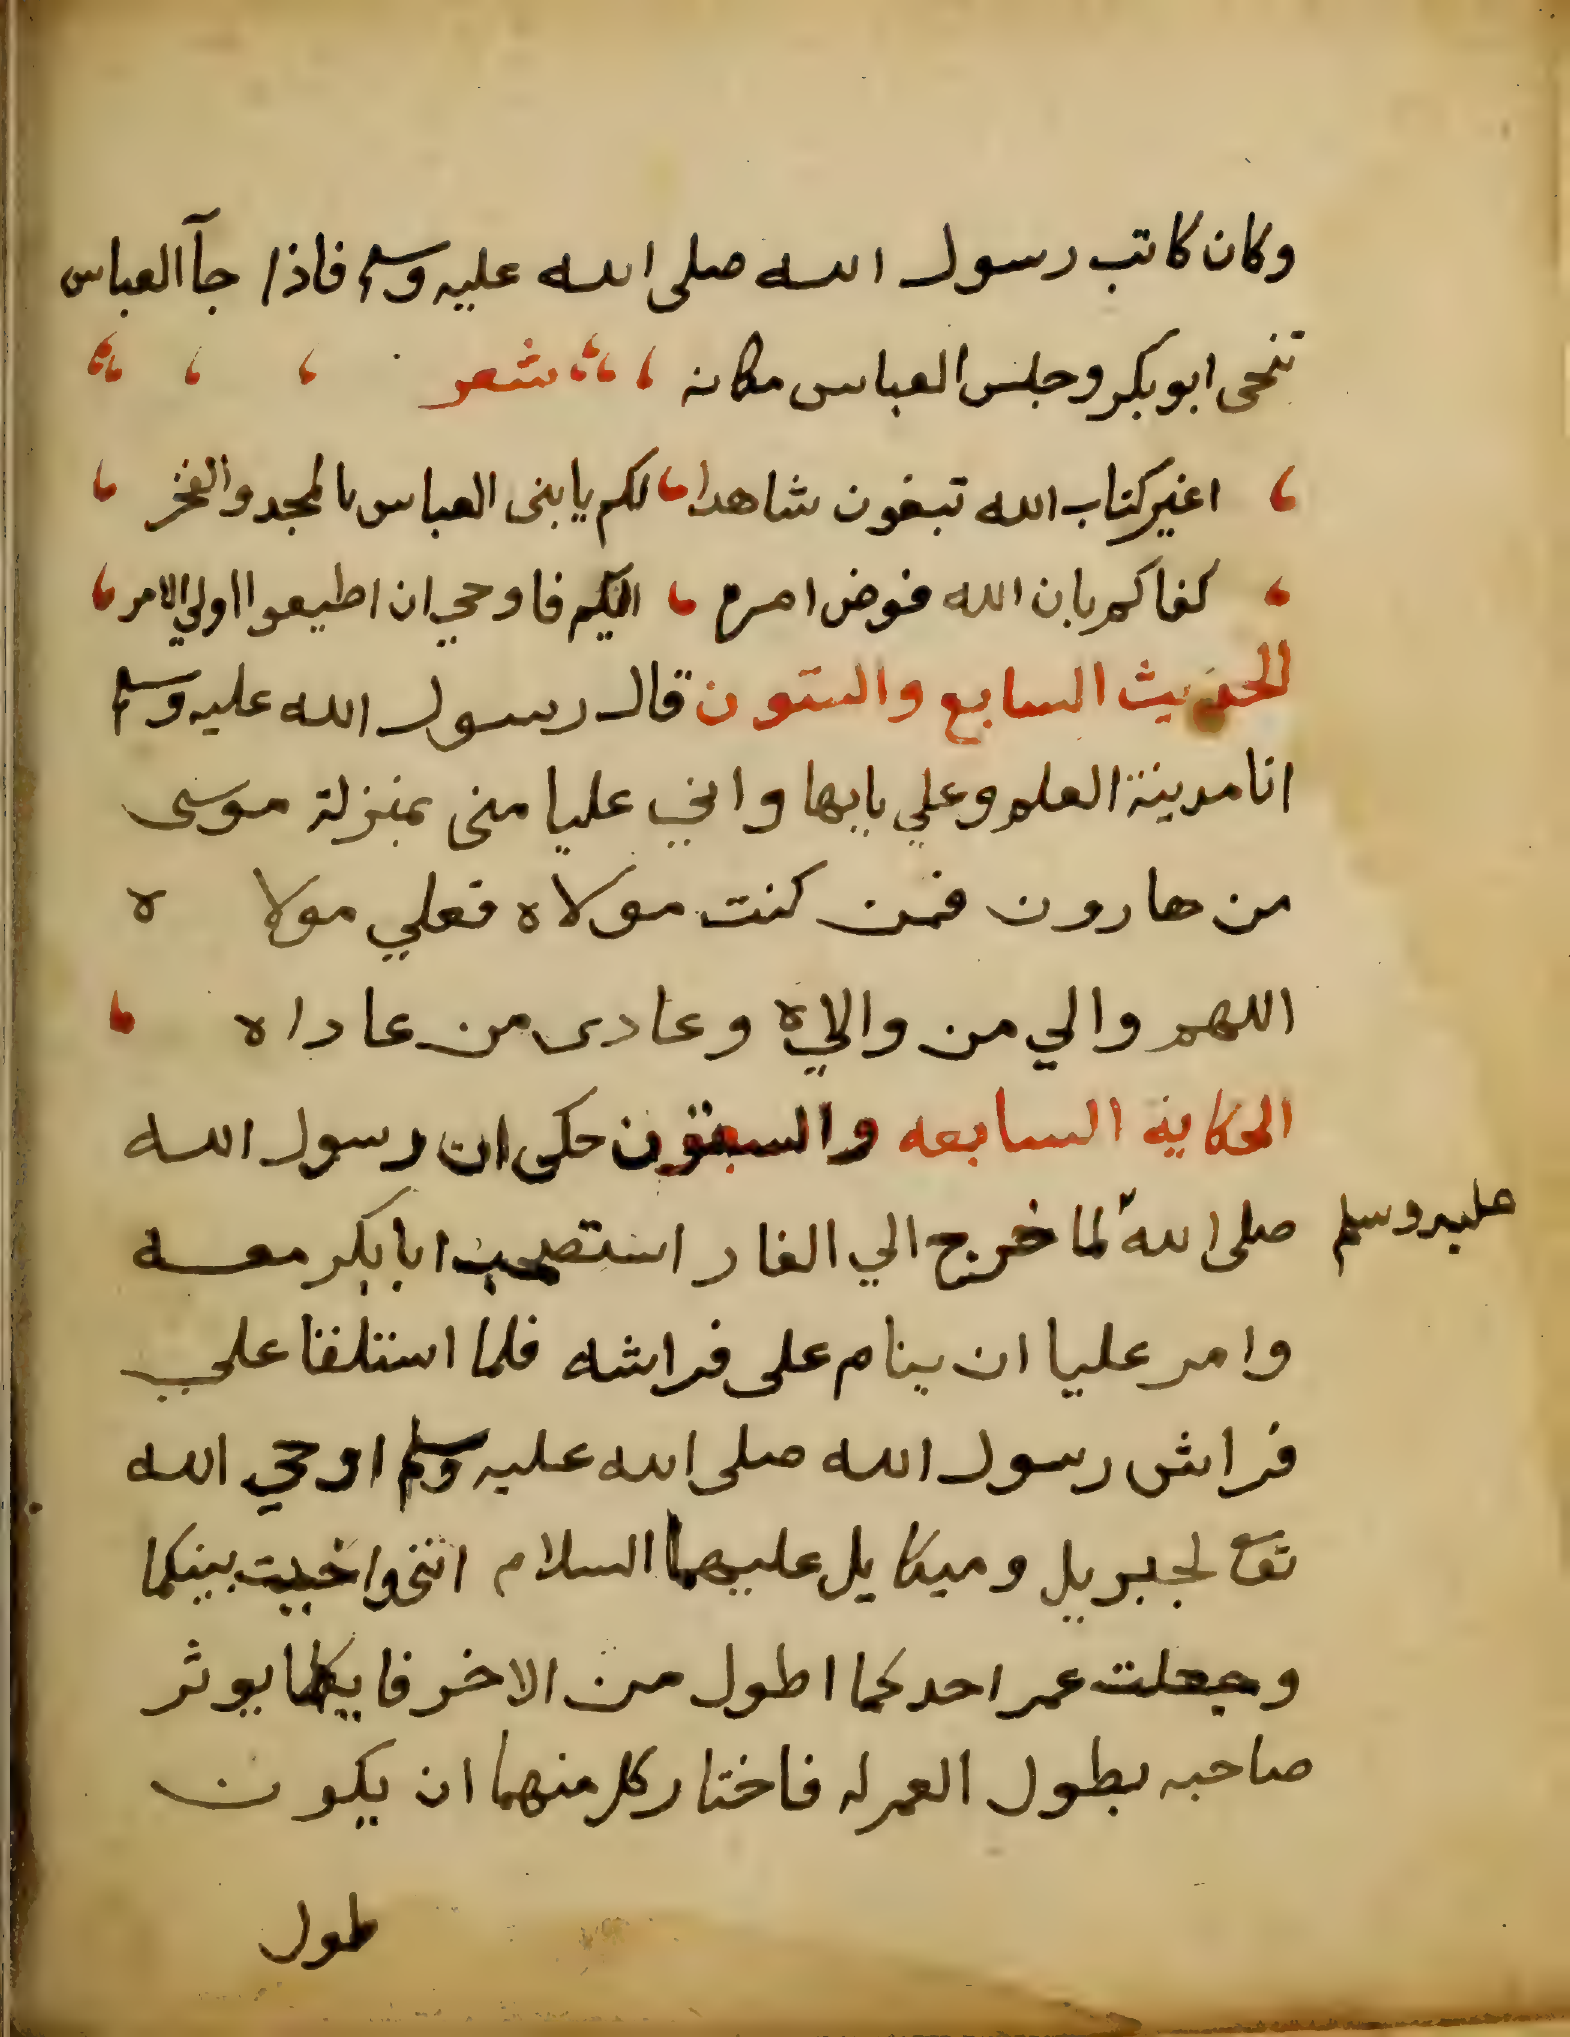 وكان كاتب رسول الله صلى الله عليه وسلم فاذا جآ العباس
تنحى ابو بكر وجلس العباس مكانه شعر
اغير كتاب الله تبغون شاهدا لكم يا بنى العباس بالمجد والفخر
كفاكم بان الله فوض امره اليكم فاوحي ان اطيعوا اولي الامر
الحديث السابع والستون قال رسول الله عليه وسلم
انا مدينة العلم وعلي بابها واني عليا منى بمنزلة موسى
من هارون فمن كنت مولاه فعلي مولاه
اللهم والي من والاه وعادى من عاداه
الحكاية السابعه والستون حكى ان رسول الله
صلى الله لما خرج الي الغار استصحب ابا بكر معه
عليه وسلم
وامر عليا ان ينام على فراشه فلما استلقا علي
فراش رسول الله صلى الله عليه وسلم اوحي الله
تع لجبريل وميكايل عليهما السلام انني واخيت بينكما
وجعلت عمر احدكما اطول من الاخر فايكما يوثر
صاحبه بطول العمر له فاختار كل منهما ان يكون
طول